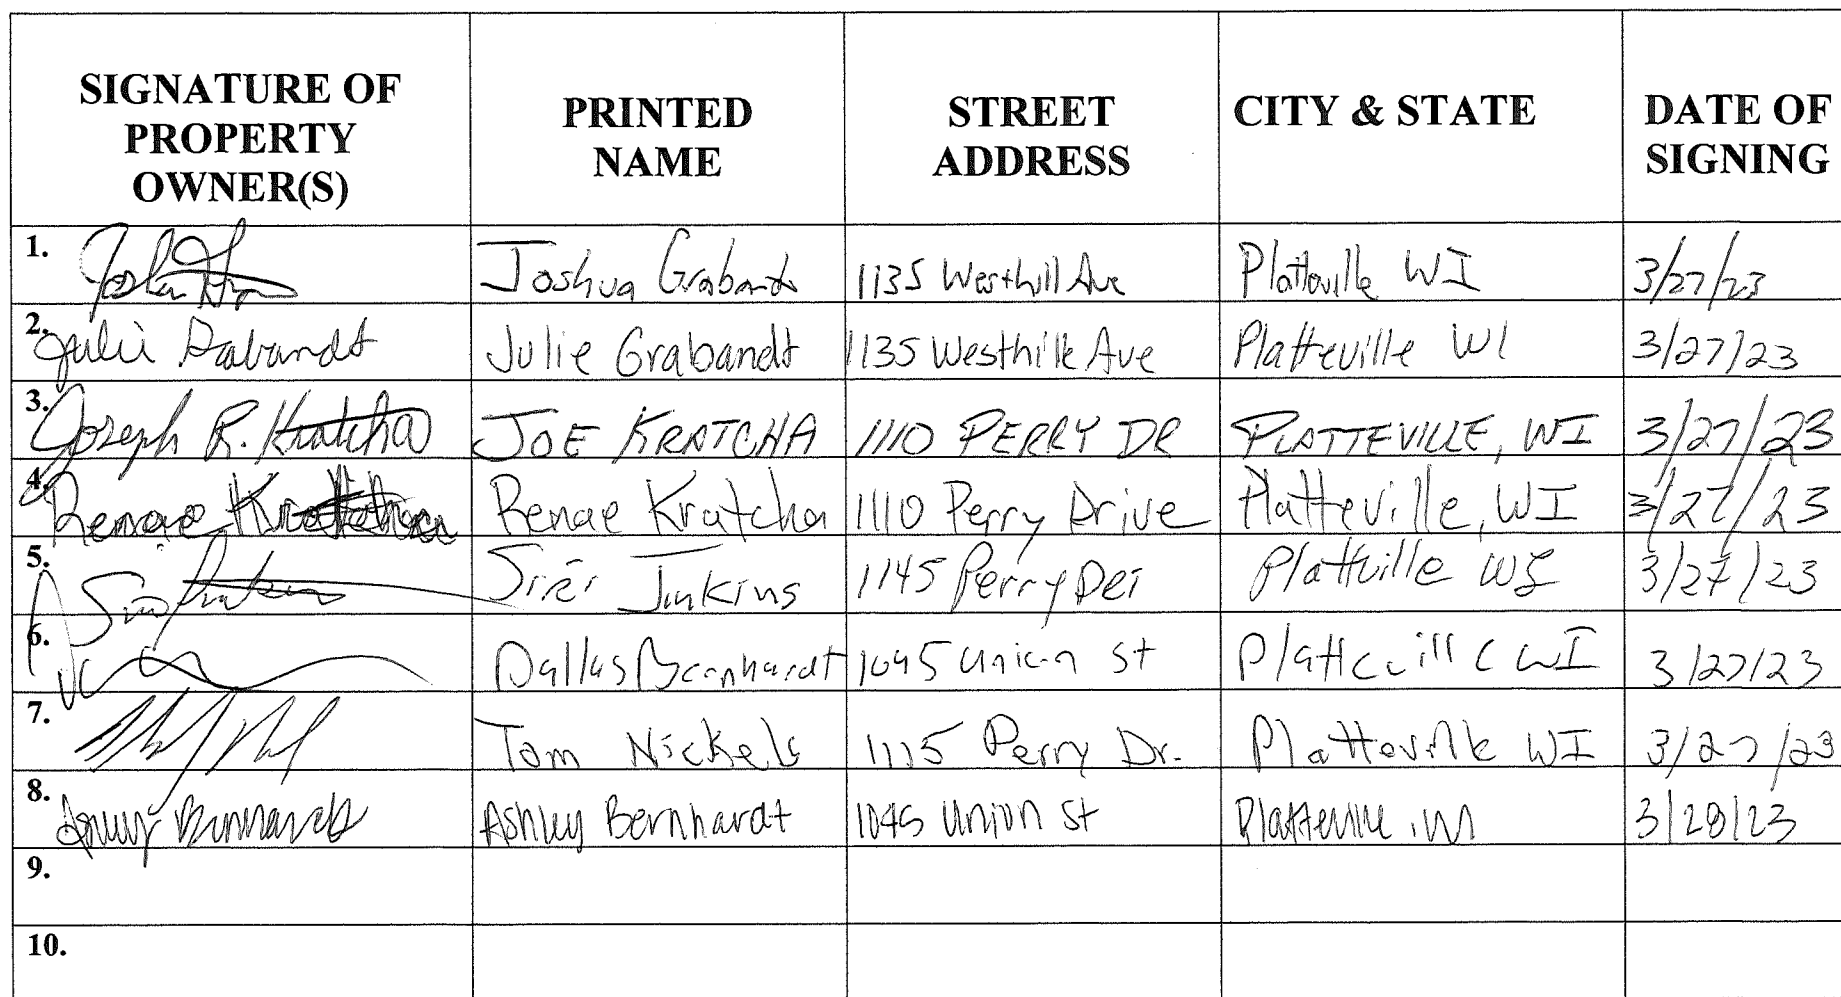 SIGNATURE OF PROPERTY OWNER(S) PRINTED NAME STREET ADDRESS CITY & STATE DATE OF SIGNING
1. Joshua Grabandt 1135 Westhill Ave Platteville WI 3/27/23
2. Julie Grabandt Julie Grabandt 1135 Westhill Ave Platteville WI 3/27/23
3. Joseph R. Kratcha JOE KRATCHA 1110 PERRY DR PLATTEVILLE, WI 3/27/23
4. Renae Kratcha Renae Kratcha 1110 Perry Drive Platteville, WI 3/27/23
5. Jenkins 1145 Perry Platteville WI 3/27/23
6. Dallas Bernhardt 1045 Union St Platteville WI 3/27/23
7. Tom Nickels 1115 Perry Dr. Platteville WI 3/27/23
8. Ashley Bernhardt Ashley Bernhardt 1045 Union St Platteville, WI 3/28/23
9.
10.